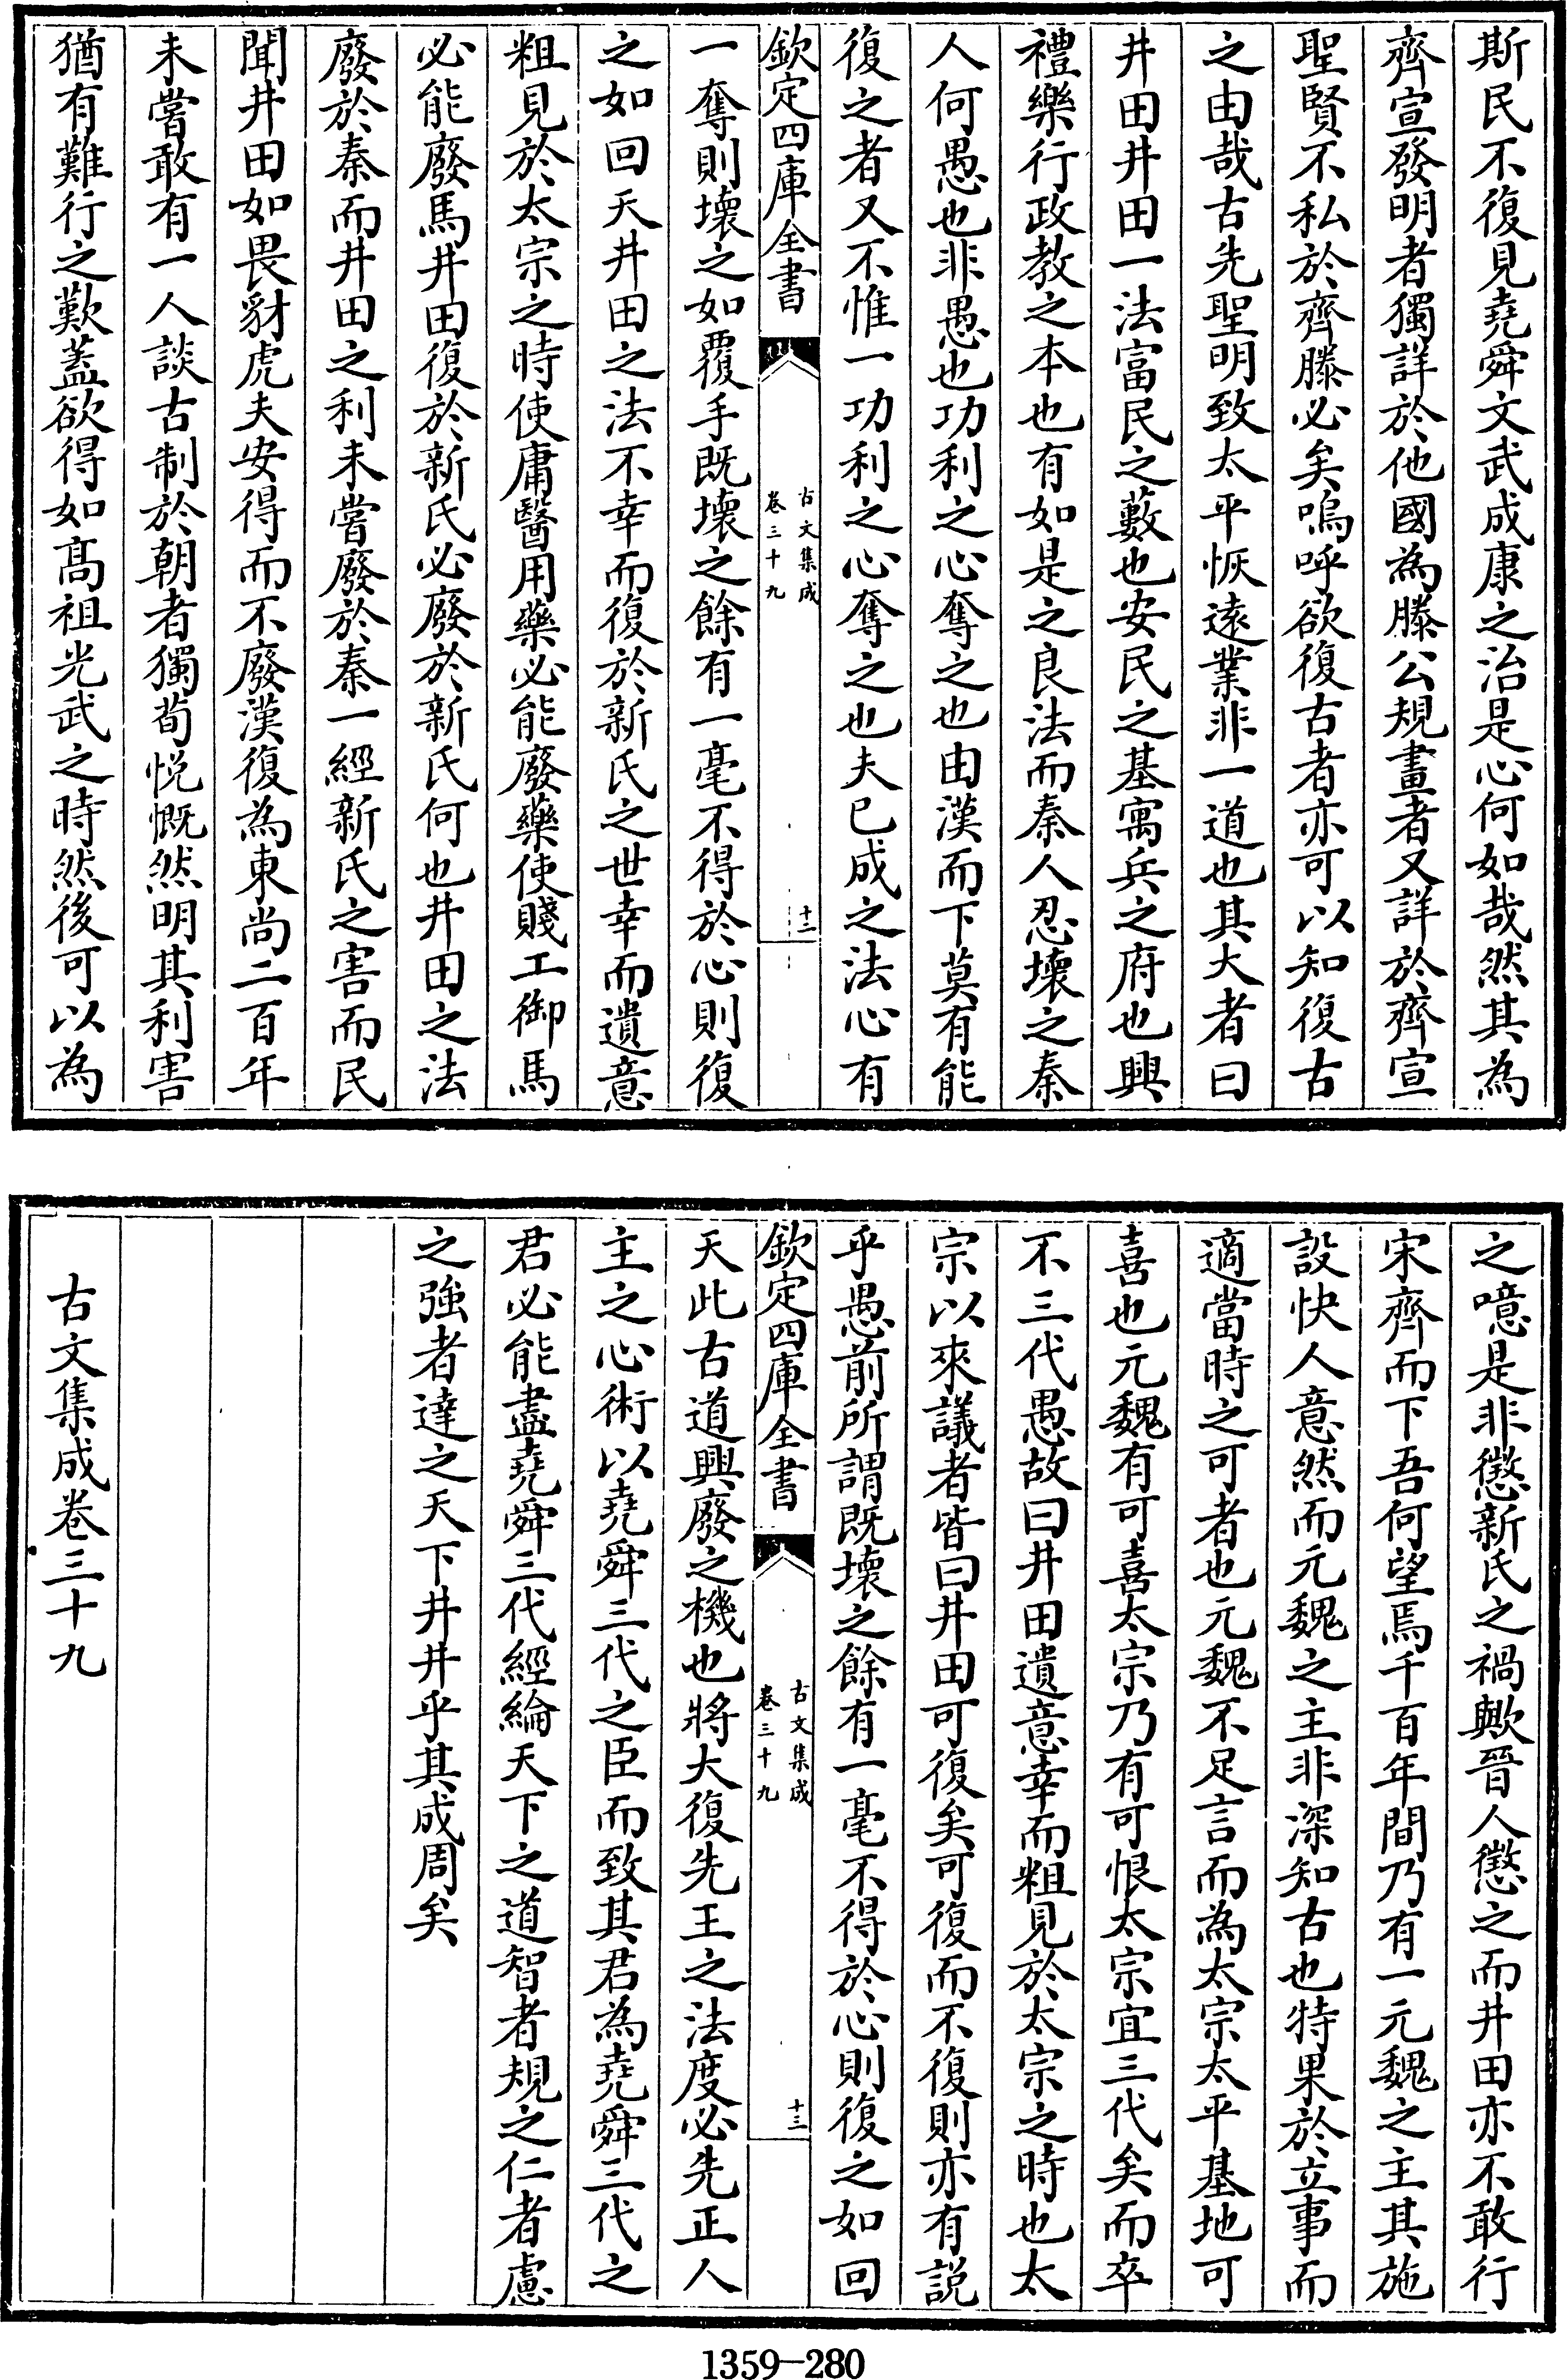 斯民不復見堯舜文武成康之治是心何如哉然其為
齊宣發明者獨詳於他國為滕公規畫者又詳於齊宣
聖賢不私於齊滕必矣嗚呼欲復古者亦可以知復古
之由哉古先聖明致太平恢遠業非一道也其大者曰
井田井田一法富民之藪也安民之基寓兵之府也興
禮樂行政教之本也有如是之良法而秦人忍壞之秦
人何愚也非愚也功利之心奪之也由漢而下莫有能
復之者又不惟一功利之心奪之也夫已成之法心有
欽定四庫全書
古文集成
卷三十九
十二
一奪則壞之如覆手既壞之餘有一毫不得於心則復
之如回天井田之法不幸而復於新氏之世幸而遺意
粗見於太宗之時使庸醫用藥必能廢藥使賤工御馬
必能廢馬井田復於新氏必廢於新氏何也井田之法
廢於秦而井田之利未嘗廢於秦一經新氏之害而民
聞井田如畏豺虎夫安得而不廢漢復為東尚二百年
未嘗敢有一人談古制於朝者獨荀悅慨然明其利害
猶有難行之歎蓋欲得如髙祖光武之時然後可以為
之噫是非懲新氏之禍歟晉人懲之而井田亦不敢行
宋齊而下吾何望焉千百年間乃有一元魏之主其施
設快人意然而元魏之主非深知古也特果於立事而
適當時之可者也元魏不足言而為太宗太平基地可
喜也元魏有可喜太宗乃有可恨太宗宜三代矣而卒
不三代愚故曰井田遺意幸而粗見於太宗之時也太
宗以來議者皆曰井田可復矣可復而不復則亦有説
乎愚前所謂既壞之餘有一毫不得於心則復之如回
欽定四庫全書
古文集成
卷三十九
十三
天此古道興廢之機也將大復先王之法度必先正人
主之心術以堯舜三代之臣而致其君為堯舜三代之
君必能盡堯舜三代經綸天下之道智者規之仁者慮
之強者達之天下井井乎其成周矣
古文集成卷三十九
1359-280